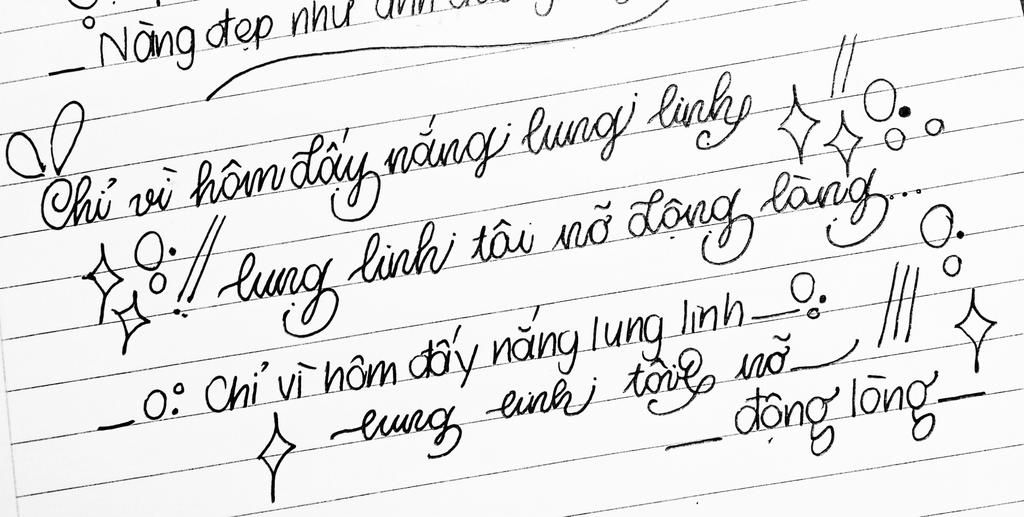 Nàng đẹp như
Chỉ vì hôm đấy nắng lung linh
lung linh tôi nỡ động lòng...
Chỉ vì hôm đấy nắng lung linh
lung linh tôi nỡ
động lòng